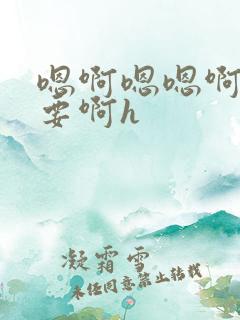 嗯啊嗯嗯啊
要啊h
凝霜雪
未经同意禁止转载